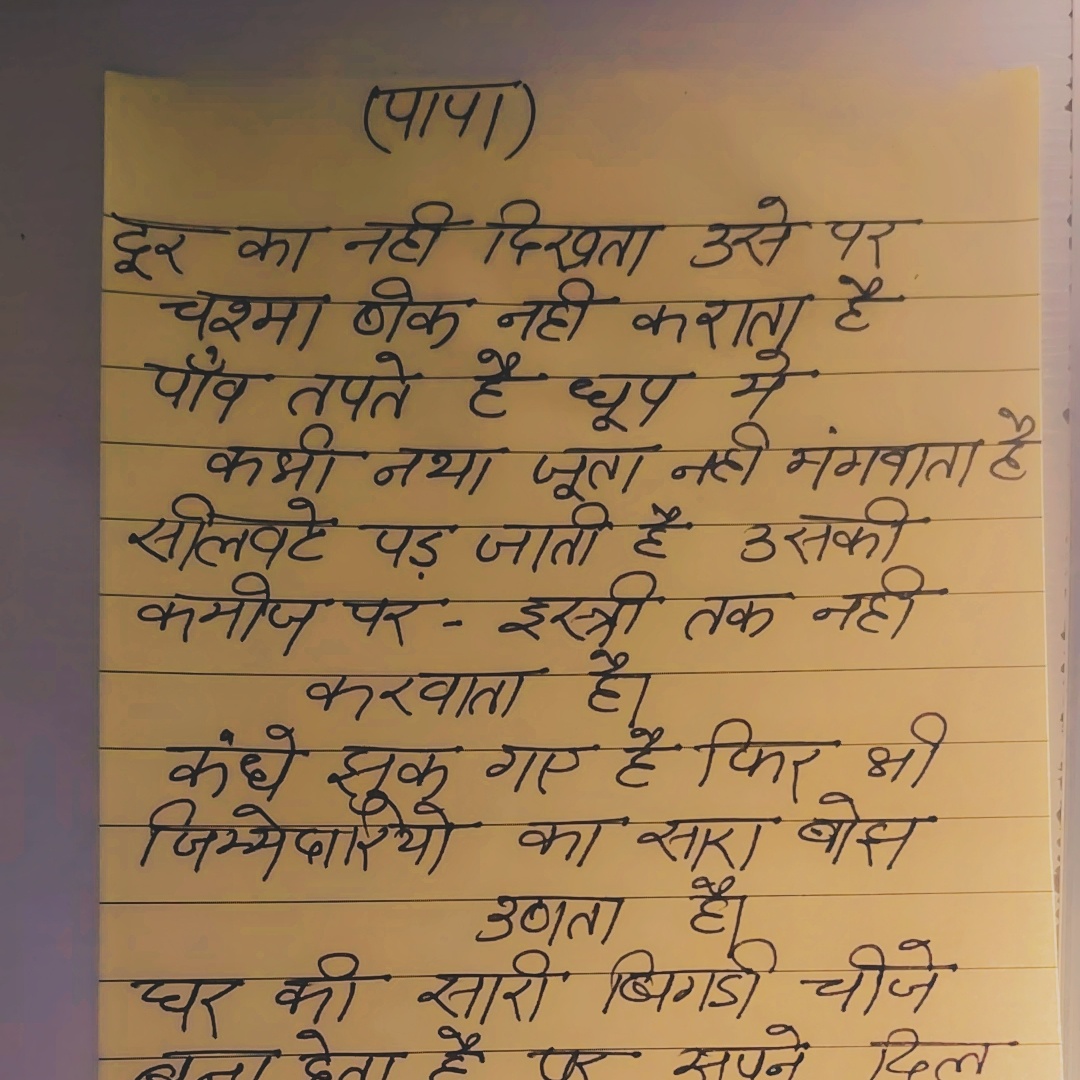 (पापा)
दूर का नही दिखता उसे पर
चश्मा ठीक नही कराता है
पाँव तपते है धूप मे
कभी नया जूता नही मंगवाता है
सीलवटे पड़ जाती है उसकी
कमीज पर - इस्त्री तक नही
करवाता है।
कंधे झुक गए है फिर भी
जिम्मेदारियो का सारा बोझ
उठाता है।
घर की सारी बिगडी चीजे
बना देता है पर सपने दिल